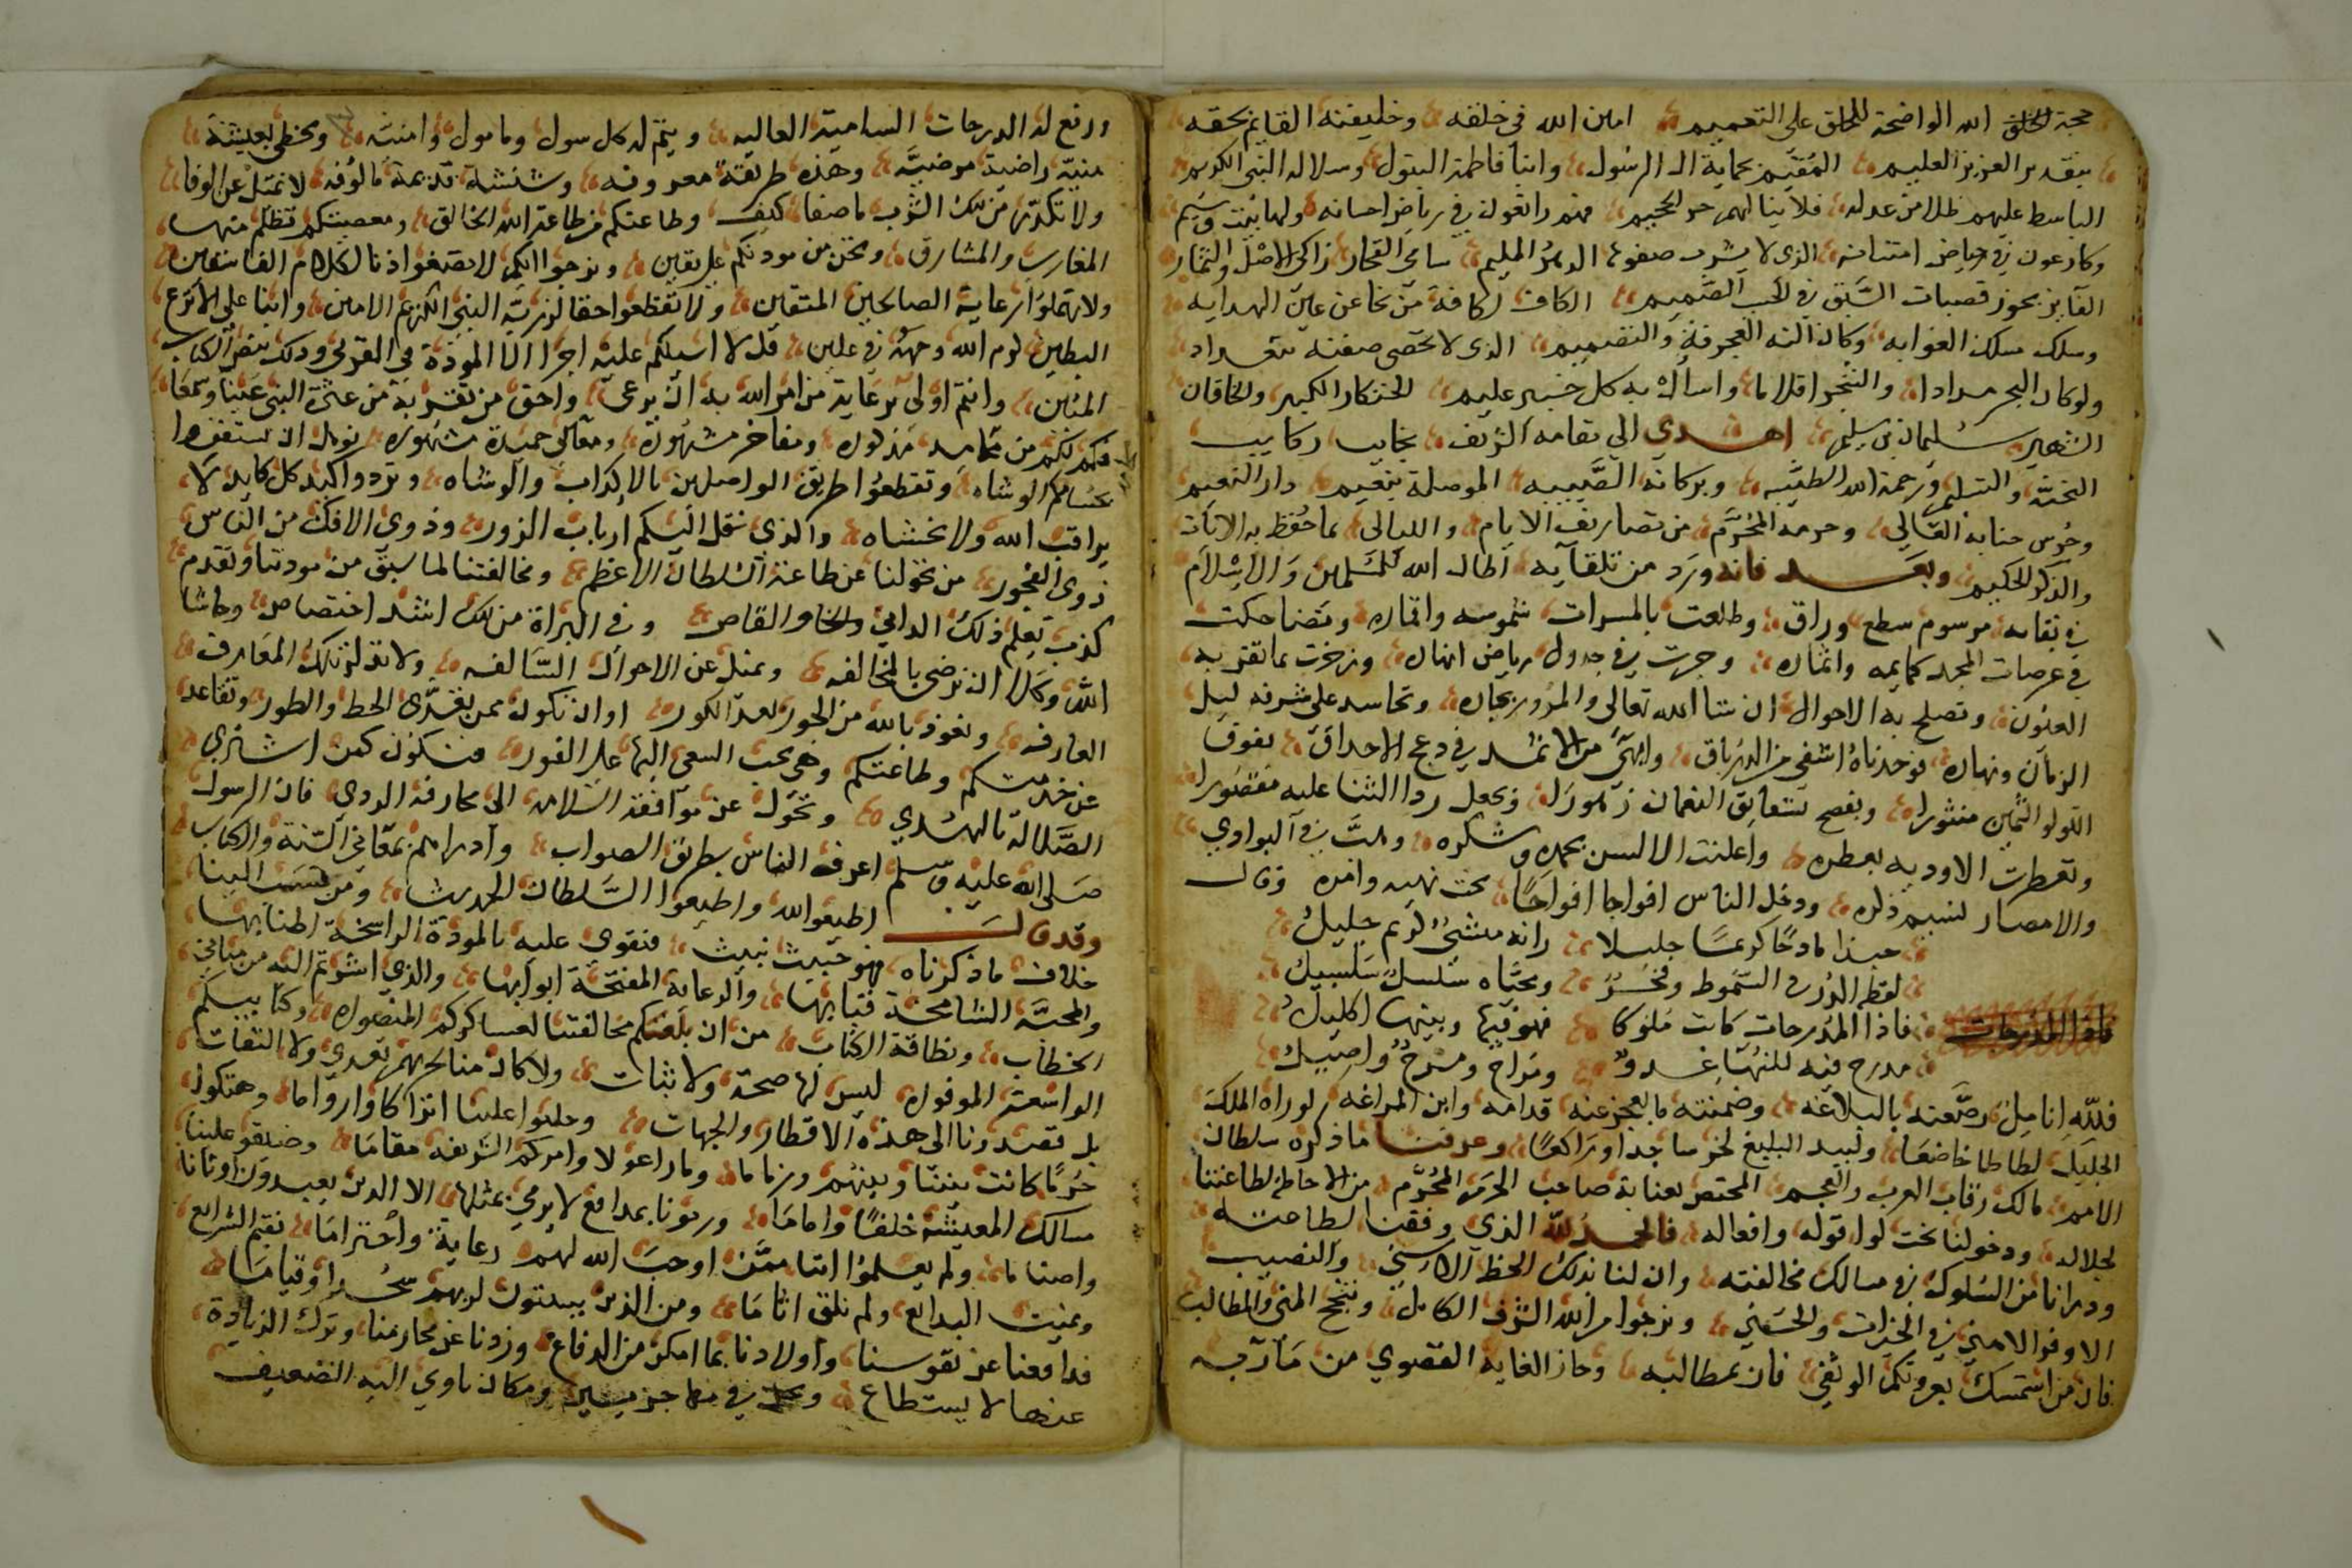 حجة الله الواضحة للخلق على التعميم امين الله في خلقه وخليفته القايم بحقه
بتقدير العزيز العليم المقيم بحماية ال الرسول وابنا فاطمة البتول وسلالة النبي الكريم
الباسط عليهم ظلا من عدله فلا ينالهم حر الجحيم فهم راتعون في رياض احسانه
وكارعون في حياض امتنانه الذي لا يشوب صفوها الدهر المليم سامي الفخار زاكي الاصل والنجار
الفايز بحوز قصبات السبق في الحسب الصميم الكاف لكافة من نحا عن عين الهداية
وسلك مسلك الغوايه وكان الته العجرفة والتصميم الذي لا تحصى صفته بتعداد
ولو كان البحر مدادا والشجر اقلاما واسأل به كل خبير عليم الخنكار الكبير والخاقان
الشهير سليمان بن سليم اهدي الى مقامه الشريف نجايب ركايب
التحية والتسليم ورحمة الله الطيبه وبركاته الصيبه الموصلة بنعيم دار النعيم
وحرس جنابه العالي وحرمه المحرم من تصاريف الايام والليالي بما حفظ به الايات
والذكر الحكيم وبعد فانه ورد من تلقايه اطال الله للمسلمين والاسلام
في بقايه مرسوم سطع وراق وطلعت بالمسرات شموسه واقماره وتضاحكت
في عرصات المجد كمايمه واثماره وجرت في جدول رياض انهاره وزخرت بما تقر به
العيون وتصلح به الاحوال ان شا الله تعالى والمرور بحاره وتحاسد على شرفه ليل
الزمان ونهاره فوجدناه اشفى من الدرياق وابهى من الاثمد في دعج الاحداق يفوق
اللولو الثمين منثورا ويفضح شقايق النعمان ويجعل ردا الثنا عليه مقصورا
وتعطرت الاوديه بعطره واعلنت الالسن بحمده وشكره وهبت في البوادي
والامصار نسيم ذكره ودخل الناس افواجا افواجا تحت نهيه وامره وقال
حبذا مادحا كريما جليلا زانه منشئ كريم جليل
لفظه الدر في السموط ومحياه سلسل سلسبيل
فاذا المدرجات كانت ملوكا فهو فيها وبينها اكليل
مدرج فيه للنهى غدو ورواح ومسرح ومقيل
فلله انامل رصعته بالبلاغه وضمنته ما يعجز عنه قدامه وابن المراغه لو راه الملك
الجليل لطاطا خاضعا ولبيد البليغ لخر ساجدا وراكعا وعرفنا ما ذكره سلطان
الامم مالك رقاب العرب والعجم المختص بعناية صاحب الحرم المحرم من الاحاطة لطاعتنا
لجلاله ودخولنا تحت لوا قوله وافعاله فالحمد لله الذي وفقنا لطاعته
ودرانا من السلوك في مسالك مخالفته وان لنا بذلك الحظ الاسنى والنصيب
الاوفر الاهني في الخيرات والحسني ونرجوا من الله الشرف الكامل ونجح المنى والمطالب
فان من استمسك بعروتكم الوثقى فاز بمطالبه وحاز الغاية القصوى من مآربه
ورفع له الدرجات السامية العاليه ويتم له كل سول ومامول وامنيه ويحظى بعيشة
هنية راضية مرضيه وهذه طريقة معروفه وشنشنة قديمة مالوفه لا نميل عن الوفا
ولا نكدر من تلك الشرب ما صفا كيف وطاعتكم من طاعة الله الخالق ومعصيتكم تظلم منها
المغارب والمشارق ونحن من مودتكم على يقين ونرجوا انكم لا تصغوا اذنا لكلام الفاسقين
ولا تهملوا رعاية الصالحين المتقين ولا تقطعوا حقا لذرية النبي الكريم الامين وابنا علي الانزع
البطين لوم الله وجهه في عليين قل لا اسيلكم عليه اجرا الا المودة في القربى وذلك بنص الكتاب
المبين وانتم اولى برعاية من امر الله به ان يرعى واحق من تقر به من عترة النبي عينا وسمعا
فكم لكم من محامد مذكوره ومفاخر مشهوره ومعالي حميدة مشهوره نومل ان
بحسامكم الوشاه وتقطعوا طريق الواصلين بالاكذاب والوشاه وتردوا كيد كل كايد لا
يراقب الله ولا يخشاه والذي نقل اليكم ارباب الزور وذوي الافك من الناس
ذوي الفجور من تحولنا عن طاعة السلطان الاعظم ومخالفتنا لما سبق من مودتنا وتقدم
كذب يعلم ذلك الداني والقاص وفي البراة من تلك اشد اختصاص وحاشا
الله وكلا ان نرضى بالمخالفه ونميل عن الاحوال السالفه ولا نبذل تلك المعارف
العارفه ونعوذ بالله من الحور بعد الكور او ان نكون ممن تعدى الحد والطور وتقاعد
عن خدمتكم وطاعتكم وهي يجب السعي اليها على الفور فنكون كمن اشترى
الضلالة بالهدى وتحول عن موافقة السلامه الى مخارفة الردى فان الرسول
صلى الله عليه وسلم اعرف الناس بطريق الصواب وادراهم بمعاني السنة والكتاب
وقد قال اطيعوا الله واطيعوا السلطان الحديث ومن نسب الينا
خلاف ما ذكرناه فهو خبيث نبيث فنقوى عليه بالمودة الراسخة اطنابها
والمحبة الشامخة قبابها والرعاية المفتحة ابوابها والذي اشرتم اليه من مباني
الخطاب ونظافة الكتاب من ان بلغكم مخالفتنا لعساكركم المنصوره وكتايبكم
الواسعة الموفوره ليس لها صحة ولا ثبات ولا كان منا لحربهم تعدي ولا التفات
بل قصدونا الى هذه الاقطار والجهات وجلبوا علينا اتراكا واروواما وهتكوا
حرما كانت بيننا وبينهم وزماما وما راعوا لاوامركم الشريفه مقاما وضيقوا علينا
مسالك المعيشة خلفا واماما ورمونا بمدافع لا يرمي بمثلها الا الذين يعبدون اوثانا
واصناما ولم يعلموا اننا ممن اوجب الله لهم رعاية واحتراما نقيم الشرايع
ونميت البدايع ولم نلق اثاما ومن الذين يبيتون لربهم سجدا وقياما
فدافعنا عن نفوسنا واولادنا بما امكن من الدفاع وزدنا عن محارمنا وترك الذيادة
عنها لا يستطاع في مهاجر يسير ومكان ياوي اليه الضعيف